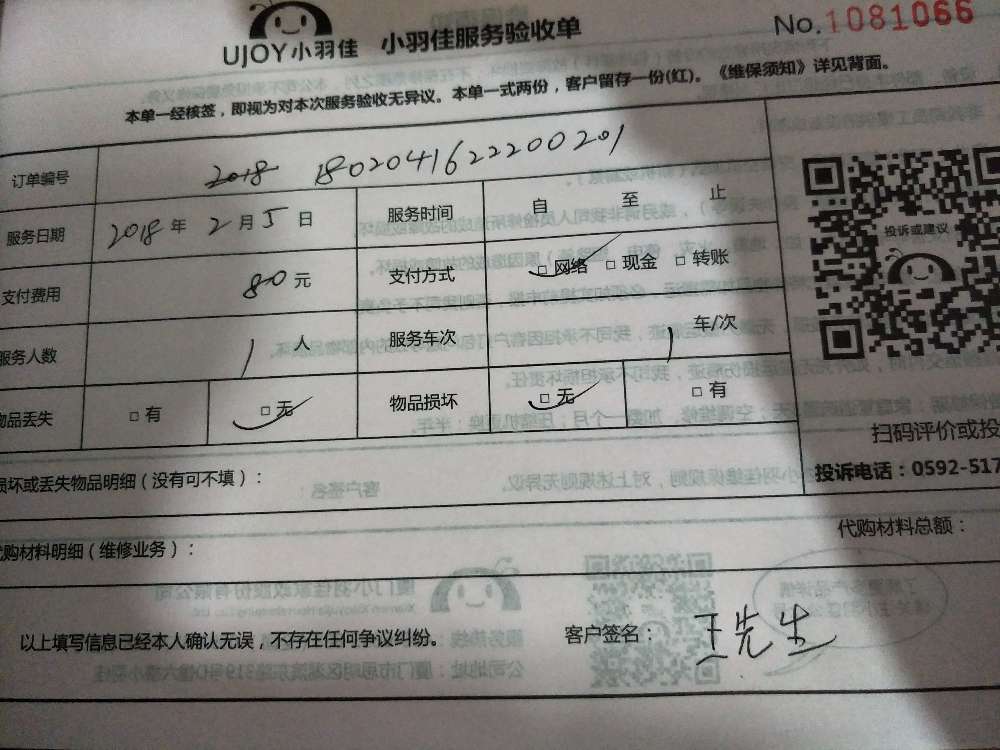 UJOY小羽佳 小羽佳服务验收单 No.1081066
本单一经核签，即视为对本次服务验收无异议。本单一式两份，客户留存一份(红)。《维保须知》详见背面。
订单编号 2018 1802041622200201
服务日期 2018年 2月5日 服务时间 自 至 止
支付费用 80元 支付方式 □网络 □现金 □转账
服务人数 1人 服务车次 1 车/次
物品丢失 □有 □无 物品损坏 □无 □有
投诉或建议
扫码评价或投
投诉电话：0592-517
损坏或丢失物品明细(没有可不填)：
代购材料明细(维修业务)： 代购材料总额：
以上填写信息已经本人确认无误，不存在任何争议纠纷。 客户签名： 王先生